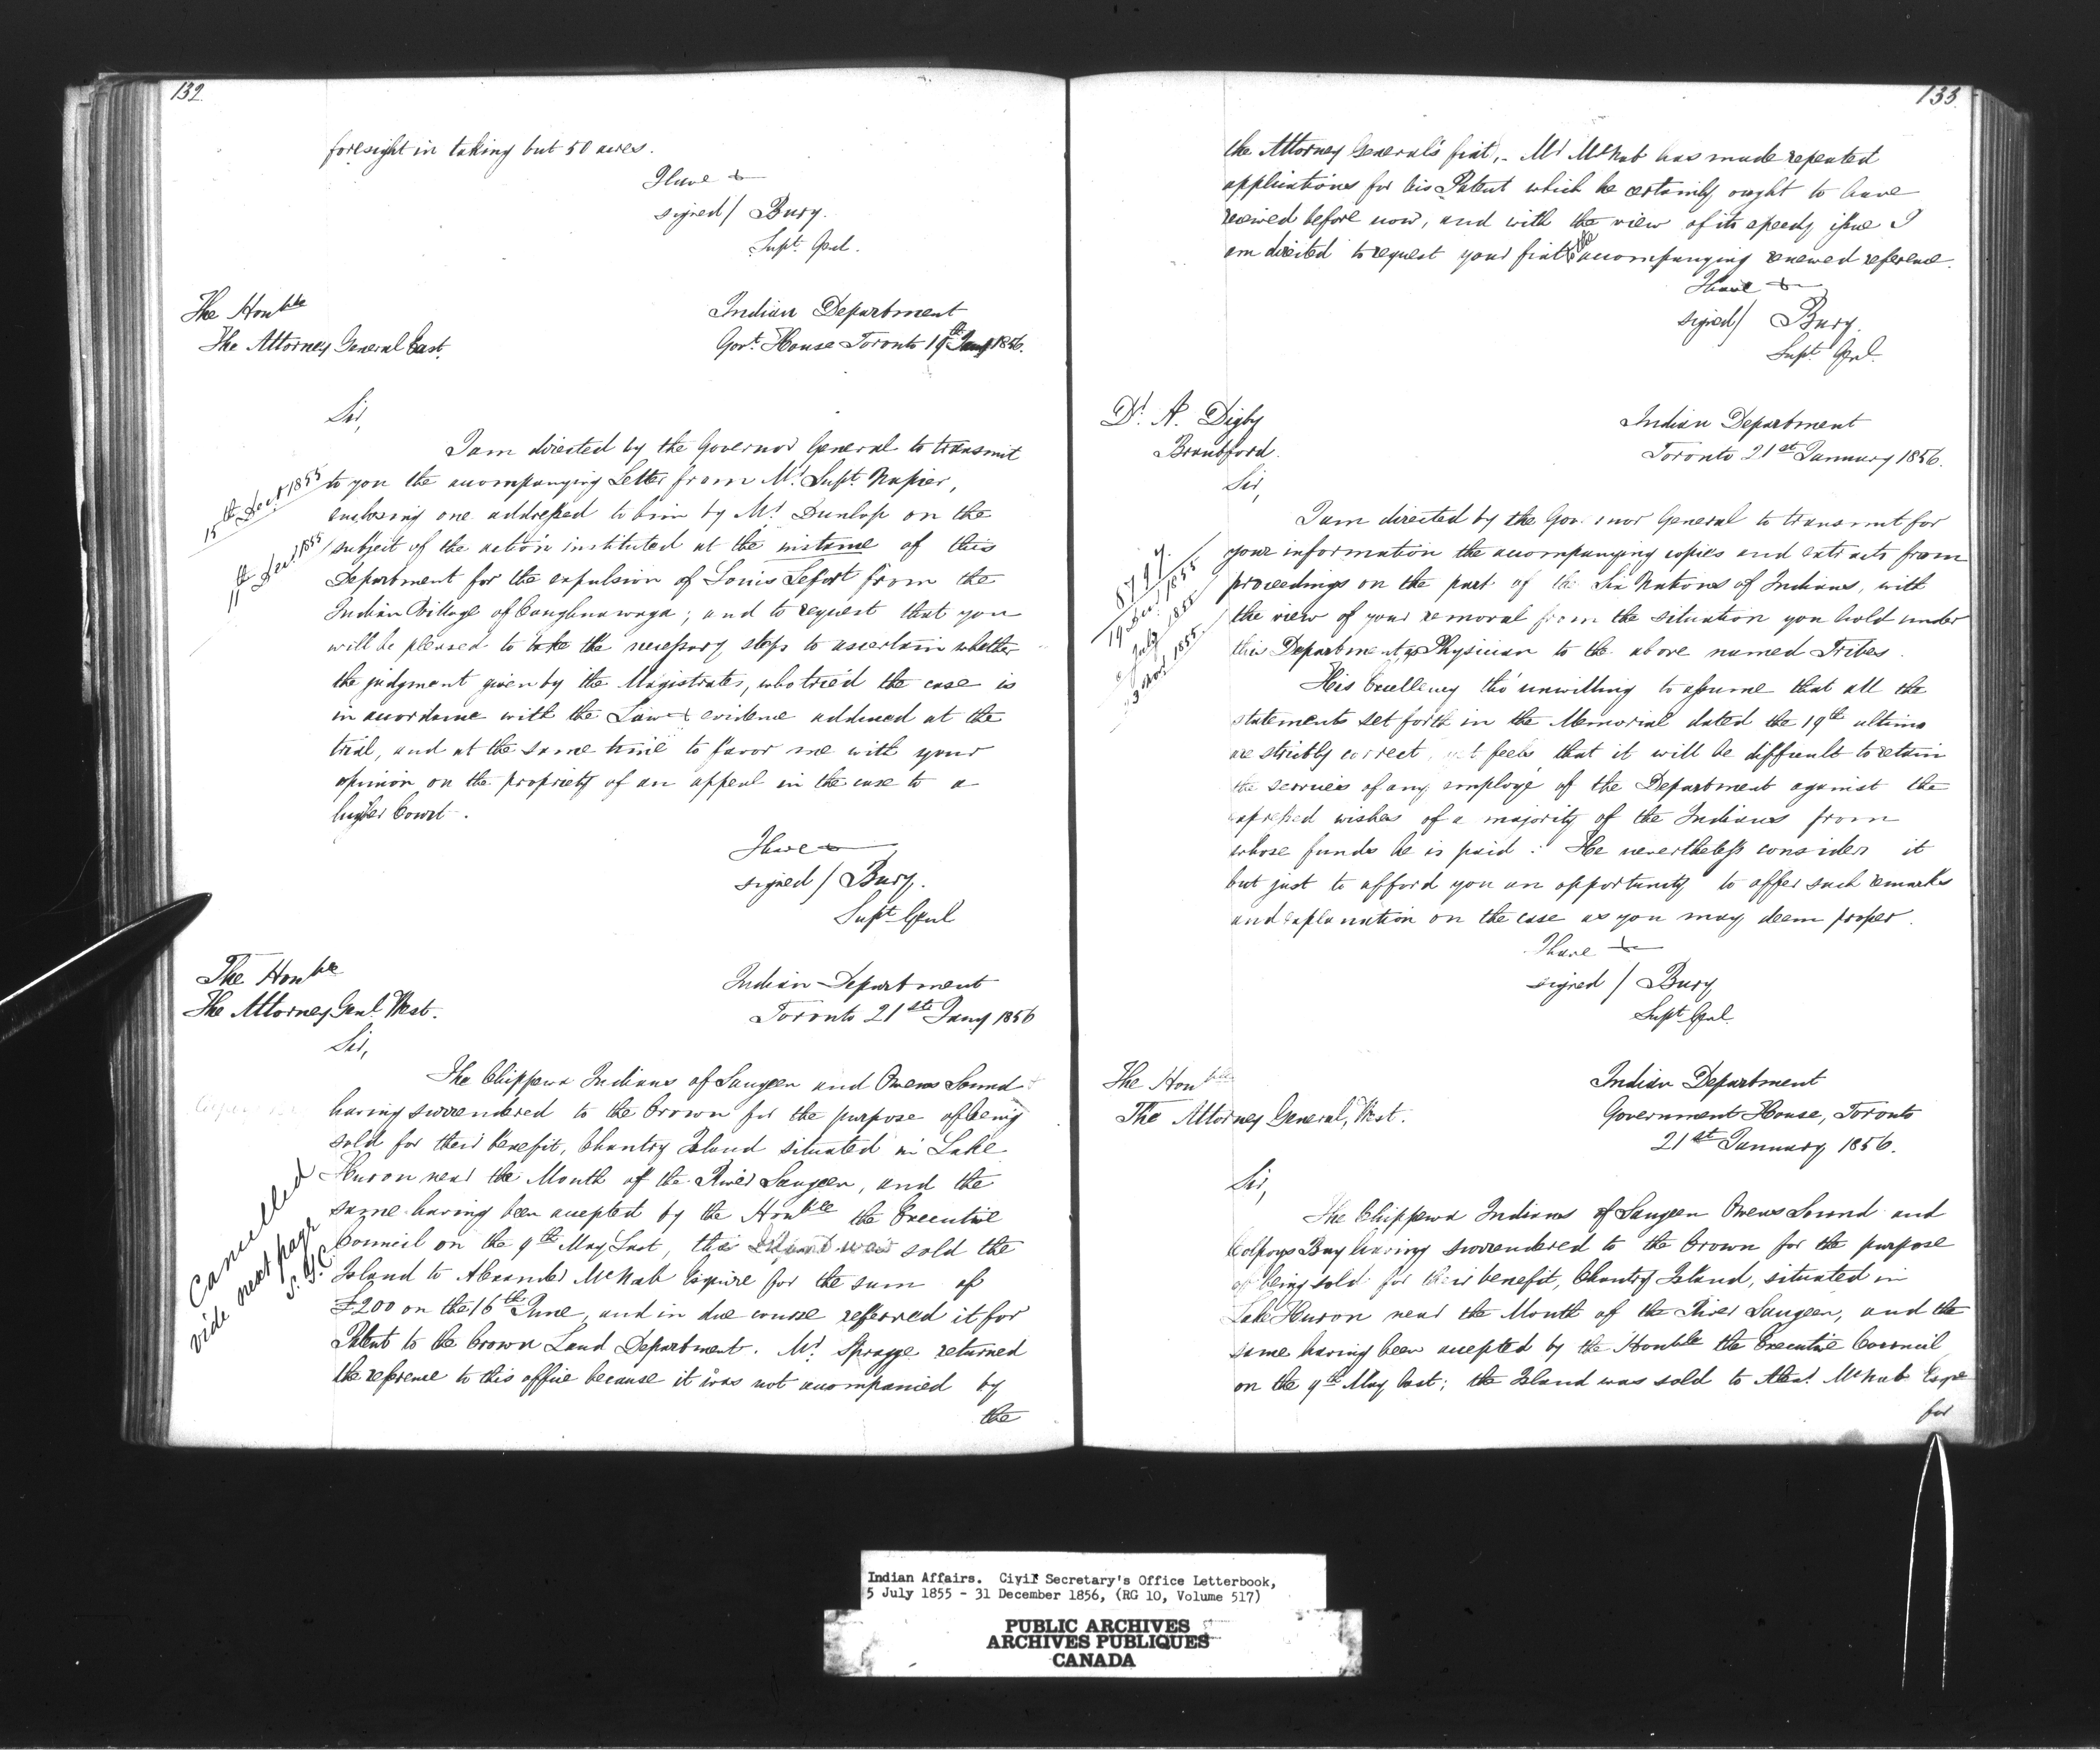 132
foresight in taking but 50 acres.
I have &
signed / Bury.
Supt. Genl.
The Honble
The Attorney General East.
Indian Department
Govt. House Toronto 19th Jany 1856.
Sir,
I am directed by the Governor General to transmit
15th Decr 1855
to you the accompanying Letter from Mr. Supt. Napier,
enclosing one addressed to him by Mr. Dunlop on the
11th Decr. 1855
subject of the action instituted at the instance of this
Department for the expulsion of Louis Lefort from the
Indian Village of Caughnawaga; and to request that you
will be pleased to take the necessary steps to ascertain whether
the judgment given by the Magistrates, who tried the case is
in accordance with the Law & evidence adduced at the
trial, and at the same time to favor me with your
opinion on the propriety of an appeal in the case to a
higher Court.
I have &
signed / Bury.
Supt Genl
The Honble
The Attorney Genl. West.
Indian Department
Toronto 21st Jany 1856
Sir,
The Chippewa Indians of Saugeen and Owens Sound
having surrendered to the Crown for the purpose of being
sold for their benefit, Chantry Island situated in Lake
Huron near the Mouth of the River Saugeen, and the
same having been accepted by the Honble the Executive
Council on the 9th May Last, this Island was sold the
Island to Alexander McNab Esquire for the sum of
£200 on the 16th June, and in due course referred it for
Patent to the Crown Land Department. Mr. Spragge returned
the reference to this office because it was not accompanied by
the
Cancelled
vide next page
S.Y.C.
133.
the Attorney General's fiat,- Mr McNab has made repeated
applications for his Patent which he certainly ought to have
received before now, and with the view of its speedy issue I
am directed to request your fiat & the accompanying renewed reference.
I have &
signed / Bury.
Supt Genl.
Dr. A. Digby
Brantford.
Indian Department
Toronto 21st January 1856.
Sir,
I am directed by the Governor General to transmit for
8797.
19 Decr 1855
July 1855
3 Nov 1855.
your information the accompanying copies and extracts from
proceedings on the part of the Six Nations of Indians, with
the view of your removal from the situation you hold under
this Department as Physician to the above named Tribes.
His Excellency tho' unwilling to assume that all the
statements set forth in the Memorial dated the 19th ultimo
are strictly correct, yet feels that it will be difficult to retain
the services of any employé of the Department against the
expressed wishes of a majority of the Indians from
whose funds he is paid: He nevertheless consider it
but just to afford you an opportunity to offer such remarks
and explanation on the case as you may deem proper.
I have &
signed / Bury
Supt Genl.
The Honble
The Attorney General, West.
Indian Department
Government House, Toronto
21st January 1856.
Sir,
The Chippewa Indians of Saugeen Owens Sound and
Colpoys Bay having surrendered to the Crown for the purpose
of being sold for their benefit, Chantry Island, situated in
Lake Huron near the Mouth of the River Saugeen, and the
same having been accepted by the Honble the Executive Council
on the 9th May last; the Island was sold to Alexr. McNab Esqre
for
Indian Affairs. Civil Secretary's Office Letterbook,
5 July 1855 - 31 December 1856, (RG 10, Volume 517)
PUBLIC ARCHIVES
ARCHIVES PUBLIQUES
CANADA